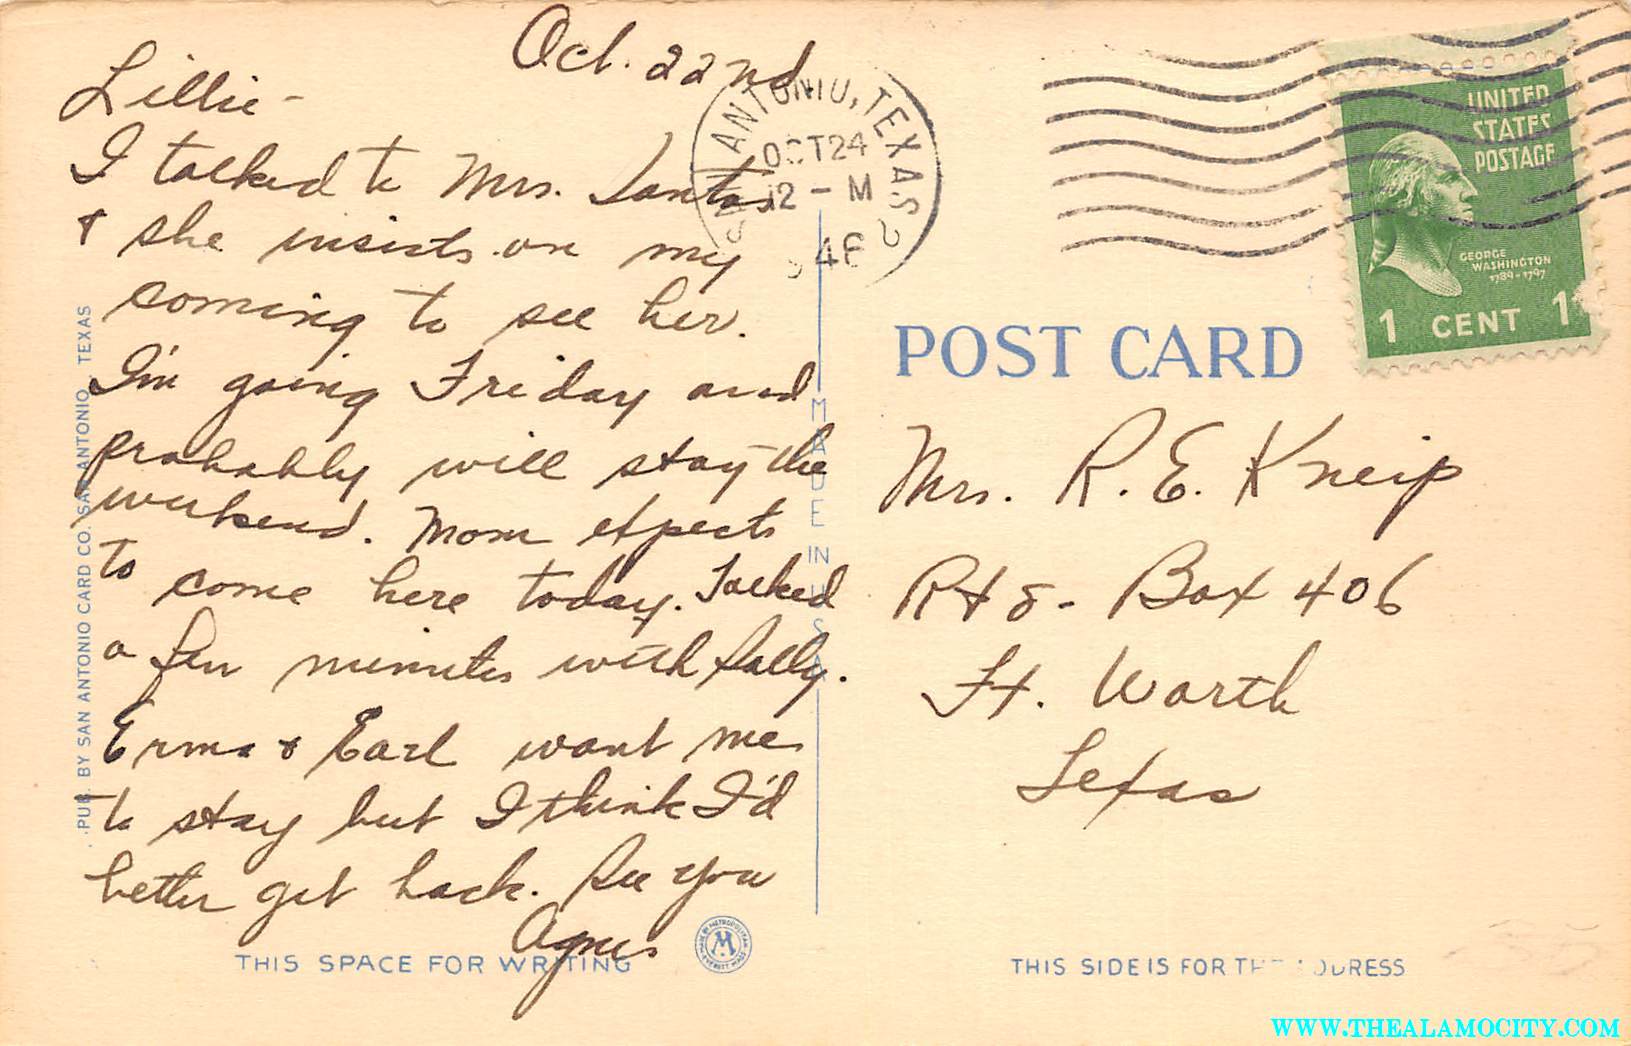 Oct. 22nd
Lillie-
I talked to Mrs. Santos
& she insists on my
coming to see her.
I'm going Friday and
probably will stay the
weekend. Mom expects
to come here today. Talked
a few minutes with Sally.
Erma & Earl want me
to stay but I think I'd
better get back. See you
Agnes
THIS SPACE FOR WRITING
PUB. BY SAN ANTONIO CARD CO. SAN ANTONIO, TEXAS
MADE IN USA
SAN ANTONIO, TEXAS 2
OCT 24
12 - M
46
UNITED
STATES
POSTAGE
GEORGE
WASHINGTON
1789-1797
1 CENT 1
POST CARD
Mrs. R. E. Kneip
Rt 8- Box 406
Ft. Worth
Texas
THIS SIDE IS FOR THE ADDRESS
M
WWW.THEALAMOCITY.COM